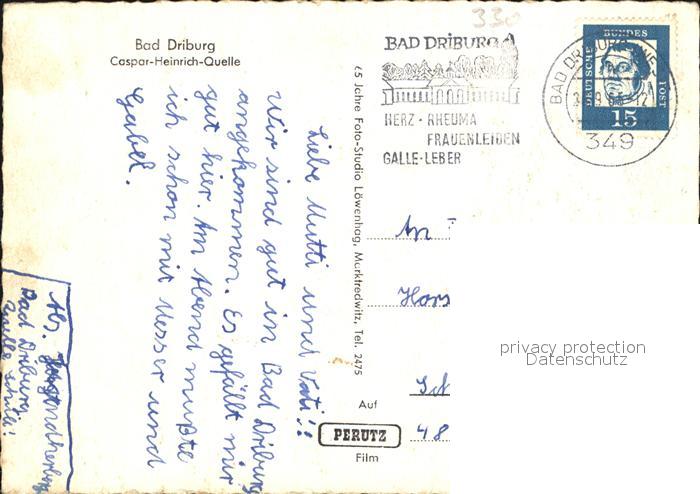 Bad Driburg
Caspar-Heinrich-Quelle
330
BAD DRIBURG
HERZ · RHEUMA
FRAUENLEIDEN
GALLE · LEBER
BAD DRIBURG
349
DEUTSCHE
BUNDES
POST
15
Liebe Mutti und Vati!!
Wir sind gut in Bad Driburg
angekommen. Es gefällt mir
gut hier. Am Abend mußte
ich schon mit Messer und
Gabel.
Abs. Jugendherberg
Bad Driburg
65 Jahre Foto-Studio Löwenhag, Marktredwitz, Tel. 2475
An
Hors
Sch
Auf
48
PERUTZ
Film
privacy protection
Datenschutz